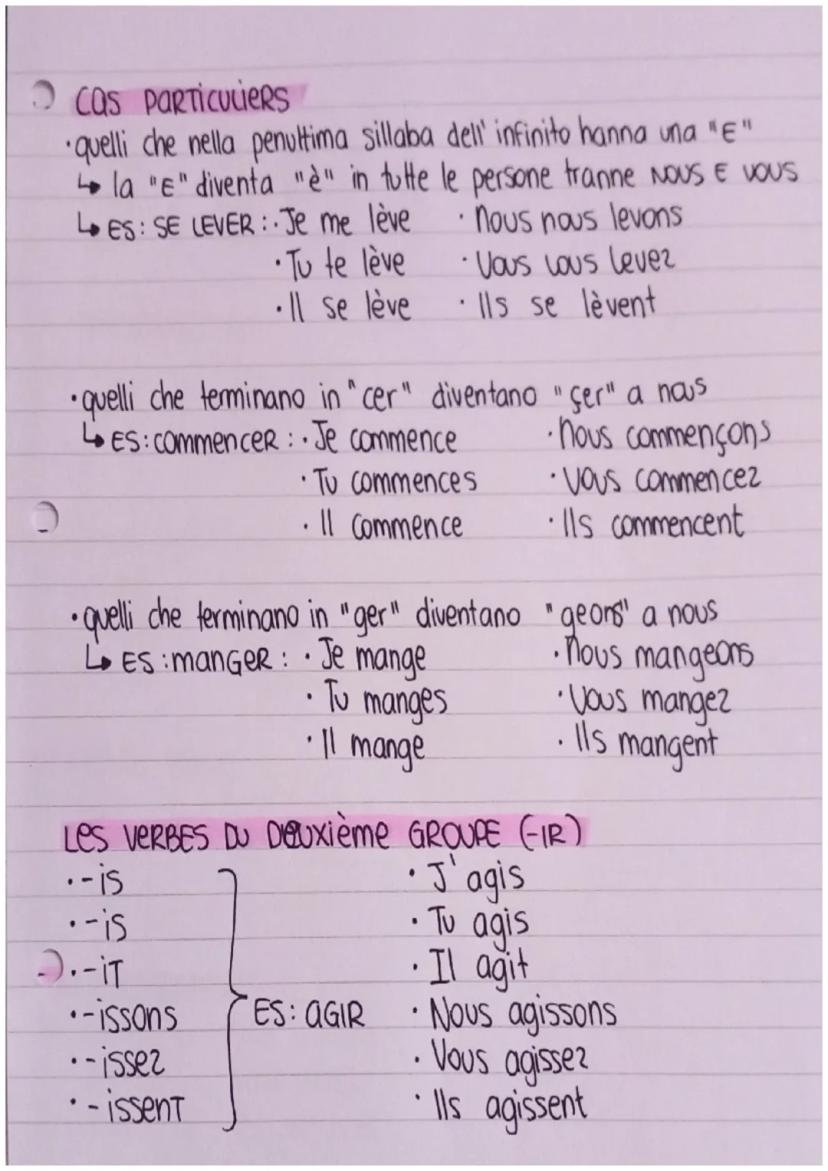 Cas Particuliers
·quelli che nella penultima sillaba dell' infinito hanna una "E"
↳ la "E" diventa "è" in tutte le persone tranne NOUS E VOUS
↳ ES: SE LEVER : · Je me lève · Nous nous levons
· Tu te lève · Vous vous levez
· Il se lève · Ils se lèvent
· quelli che terminano in "cer" diventano "çer" a nous
↳ ES: commencer : · Je commence · Nous commençons
· Tu commences · Vous commencez
· Il commence · Ils commencent
· quelli che terminano in "ger" diventano "geons" a nous
↳ ES: manger : · Je mange · Nous mangeons
· Tu manges · Vous mangez
· Il mange · Ils mangent
Les verbes du deuxième groupe (-IR)
· -is · J'agis
· -is · Tu agis
· -it · Il agit
· -issons ES: AGIR · Nous agissons
· -issez · Vous agissez
· -issent · Ils agissent